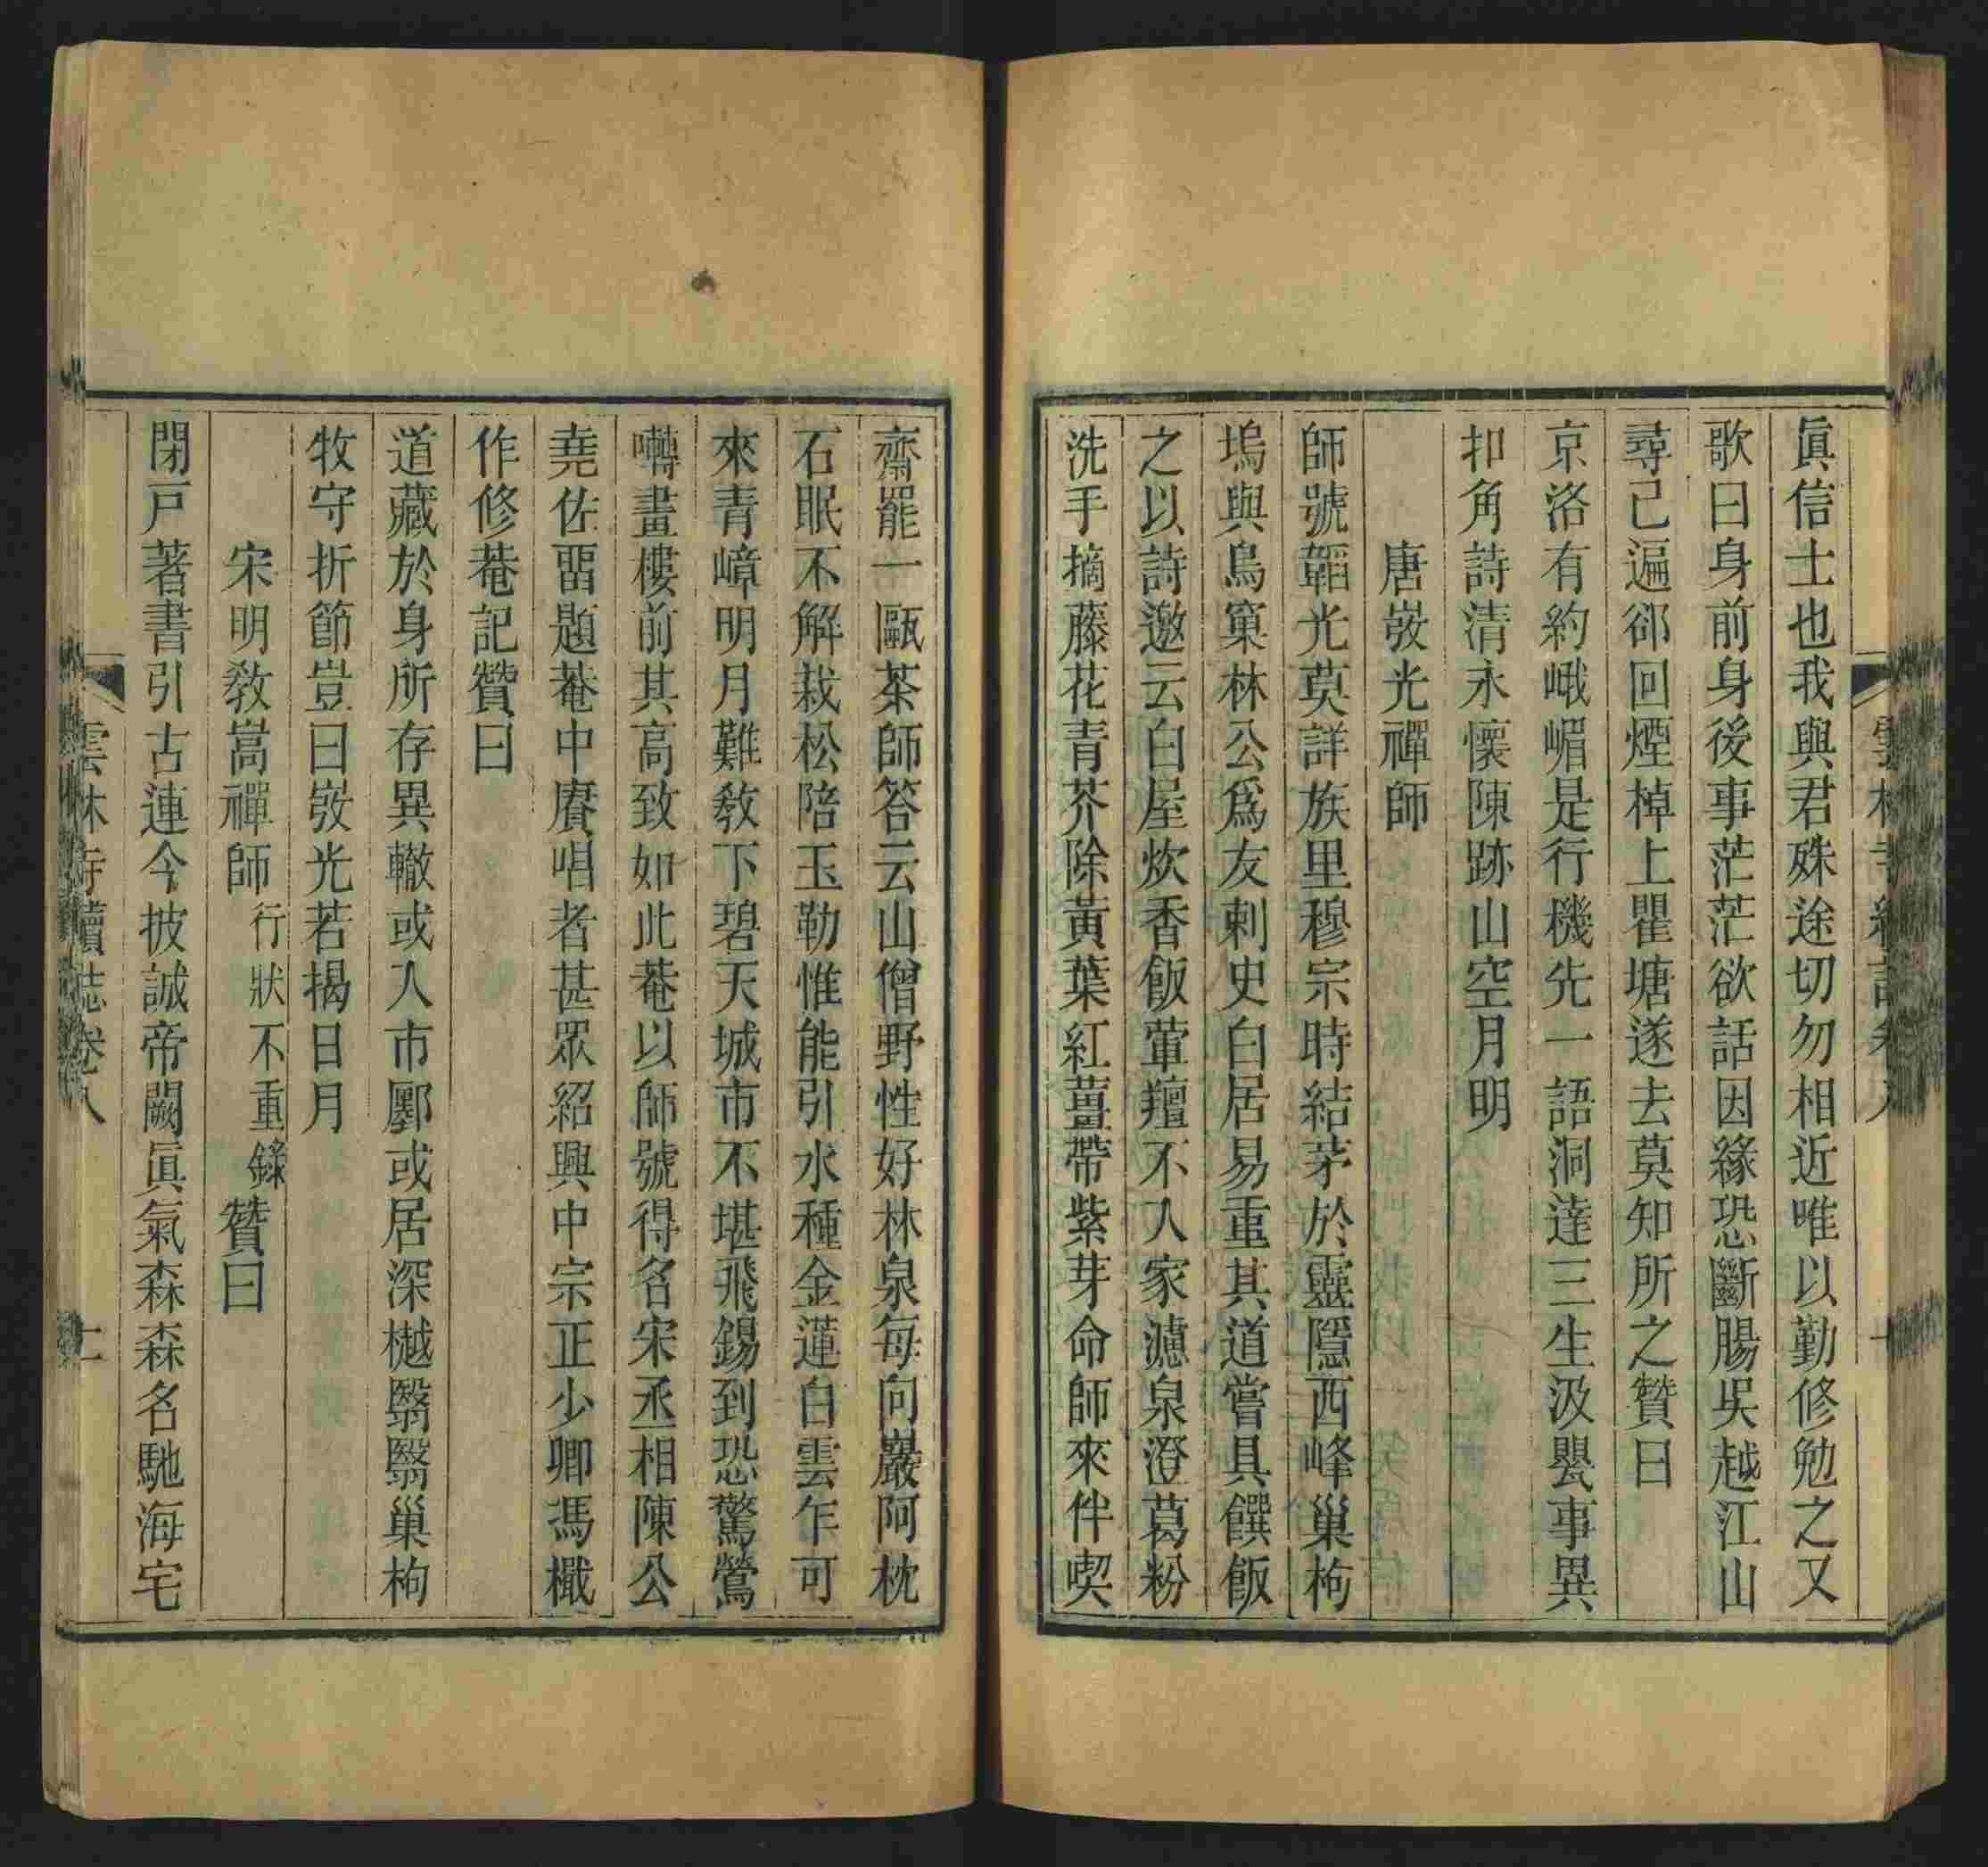 眞信士也我與君殊途切勿相近唯以勤修勉之又
歌曰身前身後事茫茫欲話因緣恐斷腸吳越江山
尋已遍郤回煙棹上瞿塘遂去莫知所之贊曰
京洛有約峨嵋是行機先一語洞達三生汲甖事異
扣角詩清永懷陳跡山空月明
唐㢡光禪師
師號韜光莫詳族里穆宗時結茅於靈隱西峰巢枸
塢與鳥窠林公爲友刺史白居易重其道嘗具饌飯
之以詩邀云白屋炊香飯葷羶不入家濾泉澄葛粉
洗手摘藤花青芥除黃葉紅薑帶紫芽命師來伴喫
齋罷一甌茶師答云山僧野性好林泉每向巖阿枕
石眠不解栽松陪玉勒惟能引水種金蓮白雲乍可
來青嶂明月難敎下碧天城市不堪飛錫到恐驚鶯
囀畫樓前其高致如此菴以師號得名宋丞相陳公
堯佐畱題菴中賡唱者甚眾紹興中宗正少卿馮檝
作修菴記贊曰
道藏於身所存異轍或入市鄽或居深樾翳翳巢枸
牧守折節豈曰㢡光若揭日月
宋明敎嵩禪師行狀不重錄贊曰
閉戸著書引古連今披誠帝闕眞氣森森名馳海宅
雲林寺續誌卷八 十一